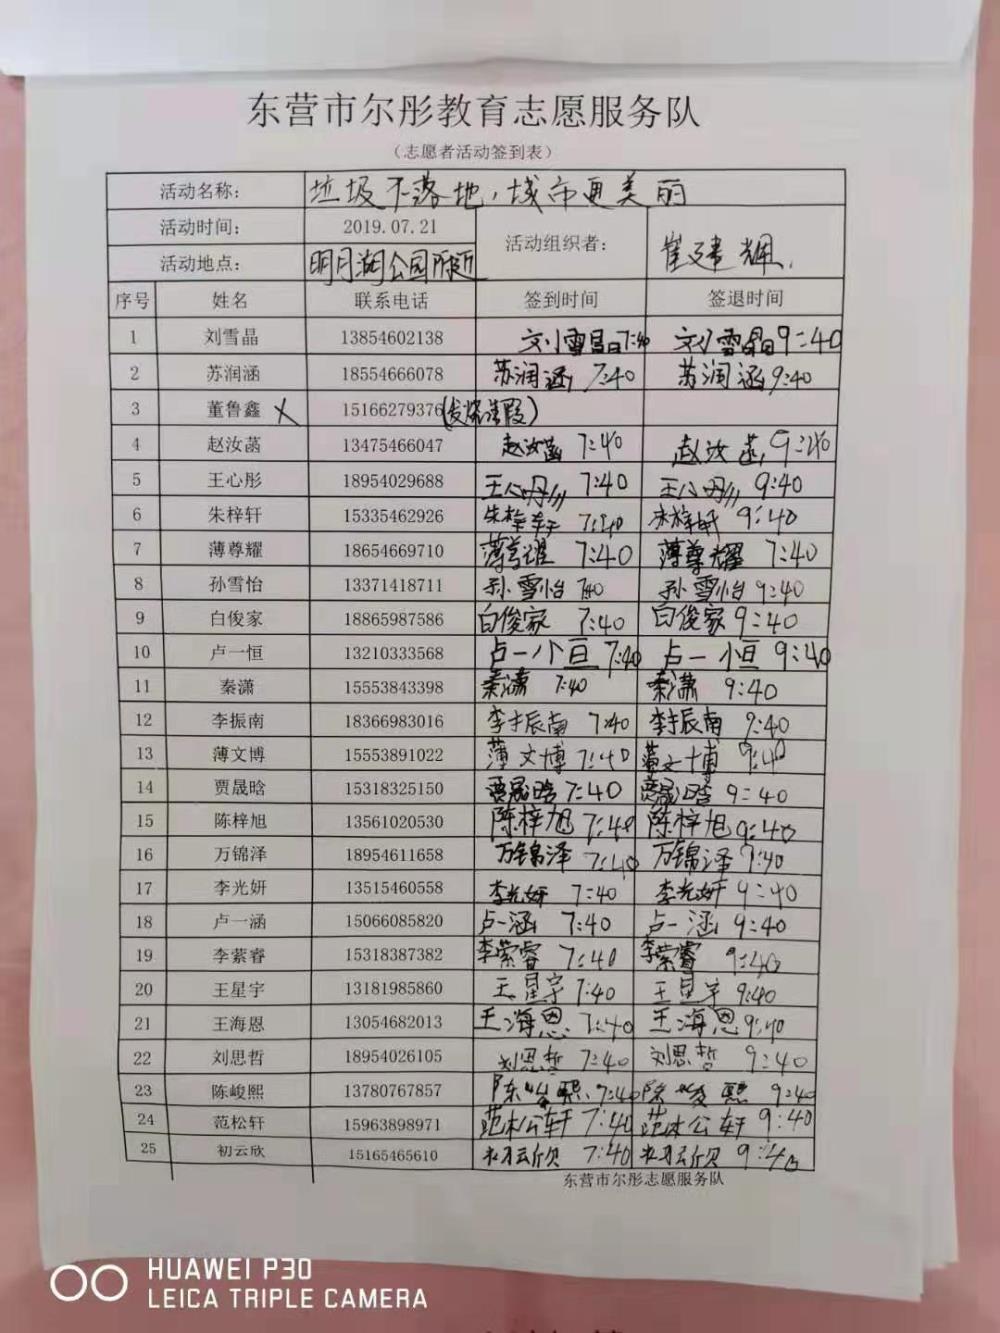 东营市尔彤教育志愿服务队
（志愿者活动签到表）
活动名称： 垃圾不落地，城市更美丽
活动时间： 2019.07.21 活动组织者： 崔建辉
活动地点： 明月湖公园附近
序号 姓名 联系电话 签到时间 签退时间
1 刘雪晶 13854602138 刘雪晶 7:40 刘雪晶 9:40
2 苏润涵 18554666078 苏润涵 7:40 苏润涵 9:40
3 董鲁鑫 X 15166279376 (发烧请假)
4 赵汝菡 13475466047 赵汝菡 7:40 赵汝菡 9:40
5 王心彤 18954029688 王心彤 7:40 王心彤 9:40
6 朱梓轩 15335462926 朱梓轩 7:40 朱梓轩 9:40
7 薄尊耀 18654669710 薄尊耀 7:40 薄尊耀 7:40
8 孙雪怡 13371418711 孙雪怡 7:40 孙雪怡 9:40
9 白俊家 18865987586 白俊家 7:40 白俊家 9:40
10 卢一恒 13210333568 卢一恒 7:40 卢一恒 9:40
11 秦潇 15553843398 秦潇 7:40 秦潇 9:40
12 李振南 18366983016 李振南 7:40 李振南 9:40
13 薄文博 15553891022 薄文博 7:40 薄文博 9:40
14 贾晟晗 15318325150 贾晟晗 7:40 贾晟晗 9:40
15 陈梓旭 13561020530 陈梓旭 7:40 陈梓旭 9:40
16 万锦泽 18954611658 万锦泽 7:40 万锦泽 9:40
17 李光妍 13515460558 李光妍 7:40 李光妍 9:40
18 卢一涵 15066085820 卢一涵 7:40 卢一涵 9:40
19 李萦睿 15318387382 李萦睿 7:40 李萦睿 9:40
20 王星宇 13181985860 王星宇 7:40 王星宇 9:40
21 王海恩 13054682013 王海恩 7:40 王海恩 9:40
22 刘思哲 18954026105 刘思哲 7:40 刘思哲 9:40
23 陈峻熙 13780767857 陈峻熙 7:40 陈峻熙 9:40
24 范松轩 15963898971 范松轩 7:40 范松轩 9:40
25 初云欣 15165465610 初云欣 7:40 初云欣 9:40
东营市尔彤志愿服务队
HUAWEI P30
LEICA TRIPLE CAMERA